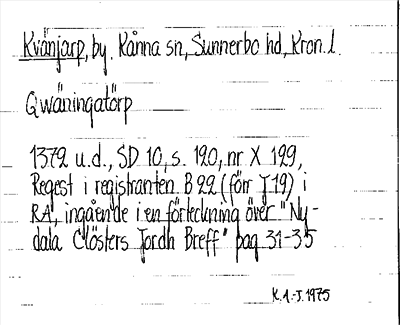 Kvänjarp, by. Kånna sn, Sunnerbo hd, Kron. l.
Qwäningatörp
1379 u.d., SD 10, s. 120, nr X 129,
Regest i registranten B 22 (förr J 19) i
RA, ingående i en förteckning över "Ny-
dala Clösters Jordh Breff" pag 31-35
K.A.-J. 1975